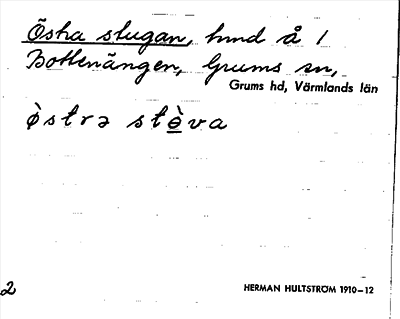 Östra stugan, hmd å 1
Bottenängen, Grums sn,
Grums hd, Värmlands län
ø̀strə stè̱va
2
HERMAN HULTSTRÖM 1910–12